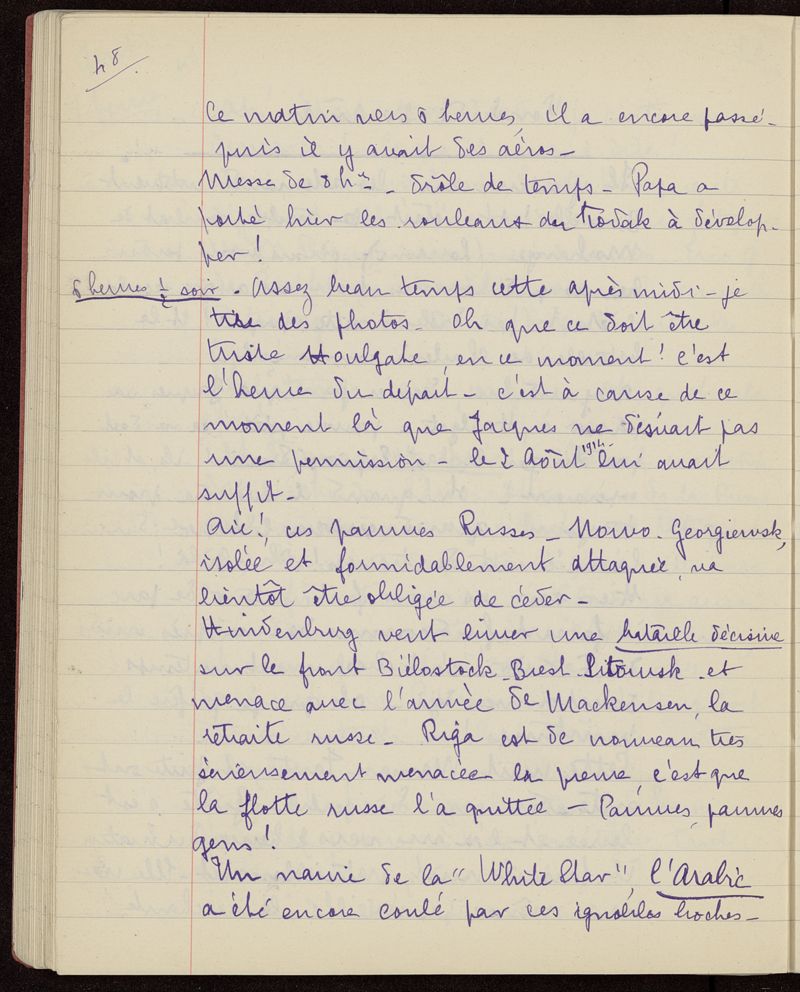 48
Ce matin vers 5 heures, il a encore passé -
puis il y avait des aéros -
Messe de 8 hres - drôle de temps - Papa a
porté hier les rouleaux du Kodak à dévelop-
per !
5 heures ½ soir - Assez beau temps cette après midi - je
tire des photos - Oh que ce doit être
triste Houlgate, en ce moment ! c'est
l'heure du départ - c'est à cause de ce
moment là que Jacques ne désirait pas
une permission - le 2 Août 1914 lui avait
suffit -
Aïe !, ces pauvres Russes - Nowo-Georgiewsk,
isolée et formidablement attaquée, va
bientôt être obligée de céder -
Hindenburg veut livrer une bataille décisive
sur le front Biélostock-Brest-Litowsk et
menace avec l'armée de Mackensen, la
retraite russe - Riga est de nouveau très
sérieusement menacée la preuve, c'est que
la flotte russe l'a quittée - Pauvres, pauvres
gens !
Un navire de la "White Star", l'Arabic
a été encore coulé par ces ignobles boches -